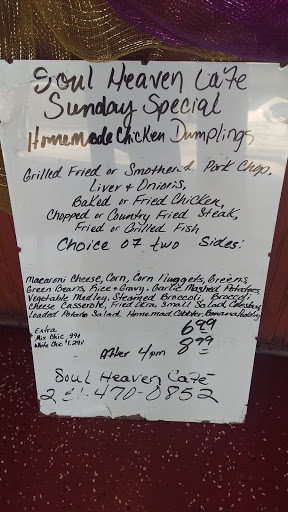 Soul Heaven Cafe
Sunday Special
Homemade Chicken Dumplings
Grilled Fried or Smothered Pork Chop.
Liver & Onions,
Baked or Fried Chicken,
Chopped or Country Fried Steak,
Fried or Grilled Fish
Choice of two Sides:
Macaroni Cheese, Corn, Corn Nuggets, Greens,
Green Beans, Rice & Gravy, Garlic Mashed Potatoes,
Vegetable Medley, Steamed Broccoli, Broccoli
Cheese Casserole, Fried Okra, Small Salad,
Loaded Potato Salad. Homemade Cobbler, Banana Pudding
6.99
Extra
Mix Chic .99¢
White Chic 1.29¢
After 4pm 8.99
Soul Heaven Cafe
251-470-0852